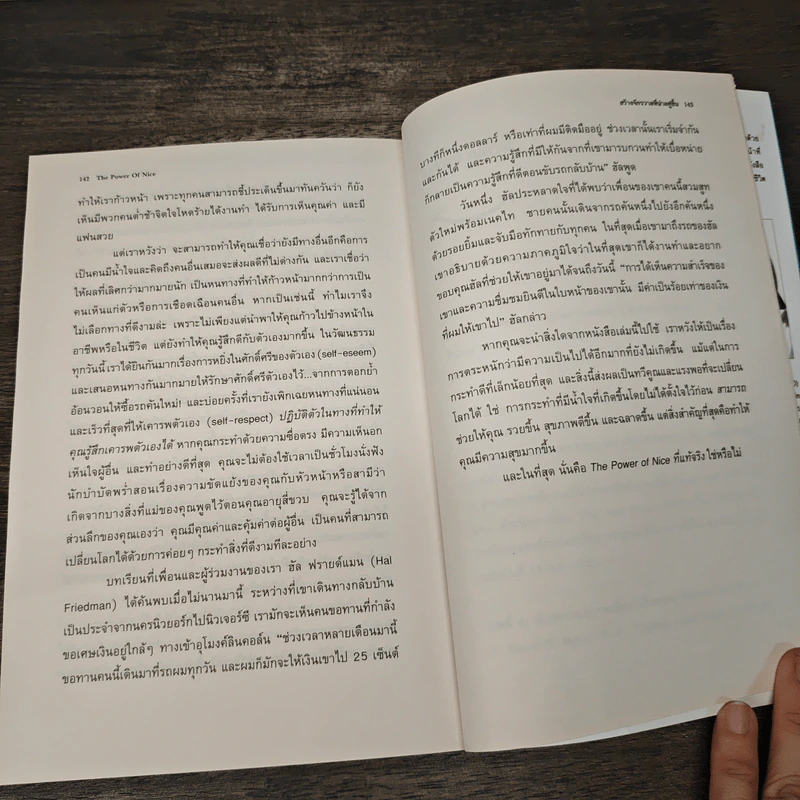 142 The Power Of Nice
ทำให้เราก้าวหน้า เพราะทุกคนสามารถชี้ประเด็นขึ้นมาทันควันว่า ก็ยัง
เห็นมีพวกคนต่ำช้าจิตใจโหดร้ายได้งานทำ ได้รับการเห็นคุณค่า และมี
แฟนสวย
แต่เราหวังว่า จะสามารถทำให้คุณเชื่อว่ายังมีทางอื่นอีกคือการ
เป็นคนมีน้ำใจและคิดถึงคนอื่นเสมอจะส่งผลดีที่ไม่ต่างกัน และเราเชื่อว่า
ให้ผลที่เลิศกว่ามากมายนัก เป็นหนทางที่ทำให้ก้าวหน้ามากกว่าการเป็น
คนเห็นแก่ตัวหรือการเชือดเฉือนคนอื่น หากเป็นเช่นนี้ ทำไมเราจึง
ไม่เลือกทางที่ดีงามล่ะ เพราะไม่เพียงแต่นำพาให้คุณก้าวไปข้างหน้าใน
อาชีพหรือในชีวิต แต่ยังทำให้คุณรู้สึกดีกับตัวเองมากขึ้น ในวัฒนธรรม
ทุกวันนี้ เราได้ยินกันมากเรื่องการหยิ่งในศักดิ์ศรีของตัวเอง (self-eseem)
และเสนอหนทางกันมากมายให้รักษาศักดิ์ศรีตัวเองไว้...จากการตอกย้ำ
อ้อนวอนให้ซื้อรถคันใหม่! และบ่อยครั้งที่เรายังเพิกเฉยหนทางที่แน่นอน
และเร็วที่สุดที่ให้เคารพตัวเอง (self-respect) ปฏิบัติตัวในทางที่ทำให้
คุณรู้สึกเคารพตัวเองได้ หากคุณกระทำด้วยความซื่อตรง มีความเห็นอก
เห็นใจผู้อื่น และทำอย่างดีที่สุด คุณจะไม่ต้องใช้เวลาเป็นชั่วโมงนั่งฟัง
นักบำบัดพร่ำสอนเรื่องความขัดแย้งของคุณกับหัวหน้าหรือสามีว่า
เกิดจากบางสิ่งที่แม่ของคุณพูดไว้ตอนคุณอายุสี่ขวบ คุณจะรู้ได้จาก
ส่วนลึกของคุณเองว่า คุณมีคุณค่าและคุ้มค่าต่อผู้อื่น เป็นคนที่สามารถ
เปลี่ยนโลกได้ด้วยการค่อยๆ กระทำสิ่งที่ดีงามทีละอย่าง
บทเรียนที่เพื่อนและผู้ร่วมงานของเรา ฮัล ฟรายด์แมน (Hal
Friedman) ได้ค้นพบเมื่อไม่นานมานี้ ระหว่างที่เขาเดินทางกลับบ้าน
เป็นประจำจากนครนิวยอร์กไปนิวเจอร์ซี เรามักจะเห็นคนขอทานที่กำลัง
ขอเศษเงินอยู่ใกล้ๆ ทางเข้าอุโมงค์ลินคอล์น “ช่วงเวลาหลายเดือนมานี้
ขอทานคนนี้เดินมาที่รถผมทุกวัน และผมก็มักจะให้เงินเขาไป 25 เซ็นต์
สร้างจักรวาลที่น่าอยู่ขึ้น 143
บางทีก็หนึ่งดอลลาร์ หรือเท่าที่ผมมีติดมืออยู่ ช่วงเวลานั้นเราเริ่มจำกัน
และกันได้ และความรู้สึกที่มีให้กันจากที่เขามารบกวนทำให้เบื่อหน่าย
ก็กลายเป็นความรู้สึกที่ดีตอนขับรถกลับบ้าน” ฮัลพูด
วันหนึ่ง ฮัลประหลาดใจที่ได้พบว่าเพื่อนของเขาคนนี้สวมสูท
ตัวใหม่พร้อมเนคไท ชายคนนั้นเดินจากรถคันหนึ่งไปยังอีกคันหนึ่ง
ด้วยรอยยิ้มและจับมือทักทายกับทุกคน ในที่สุดเมื่อเขามาถึงรถของฮัล
เขาอธิบายด้วยความภาคภูมิใจว่าในที่สุดเขาก็ได้งานทำและอยาก
ขอบคุณฮัลที่ช่วยให้เขาอยู่มาได้จนถึงวันนี้ “การได้เห็นความสำเร็จของ
เขาและความชื่นชมยินดีในใบหน้าของเขานั้น มีค่าเป็นร้อยเท่าของเงิน
ที่ผมให้เขาไป” ฮัลกล่าว
หากคุณจะนำสิ่งใดจากหนังสือเล่มนี้ไปใช้ เราหวังให้เป็นเรื่อง
การตระหนักว่ามีความเป็นไปได้อีกมากที่ยังไม่เกิดขึ้น แม้แต่ในการ
กระทำดีที่เล็กน้อยที่สุด และสิ่งนี้ส่งผลเป็นทวีคูณและแรงพอที่จะเปลี่ยน
โลกได้ ใช่ การกระทำที่มีน้ำใจที่เกิดขึ้นโดยไม่ได้ตั้งใจไว้ก่อน สามารถ
ช่วยให้คุณ รวยขึ้น สุขภาพดีขึ้น และฉลาดขึ้น แต่สิ่งสำคัญที่สุดคือทำให้
คุณมีความสุขมากขึ้น
และในที่สุด นั่นคือ The Power of Nice ที่แท้จริง ใช่หรือไม่